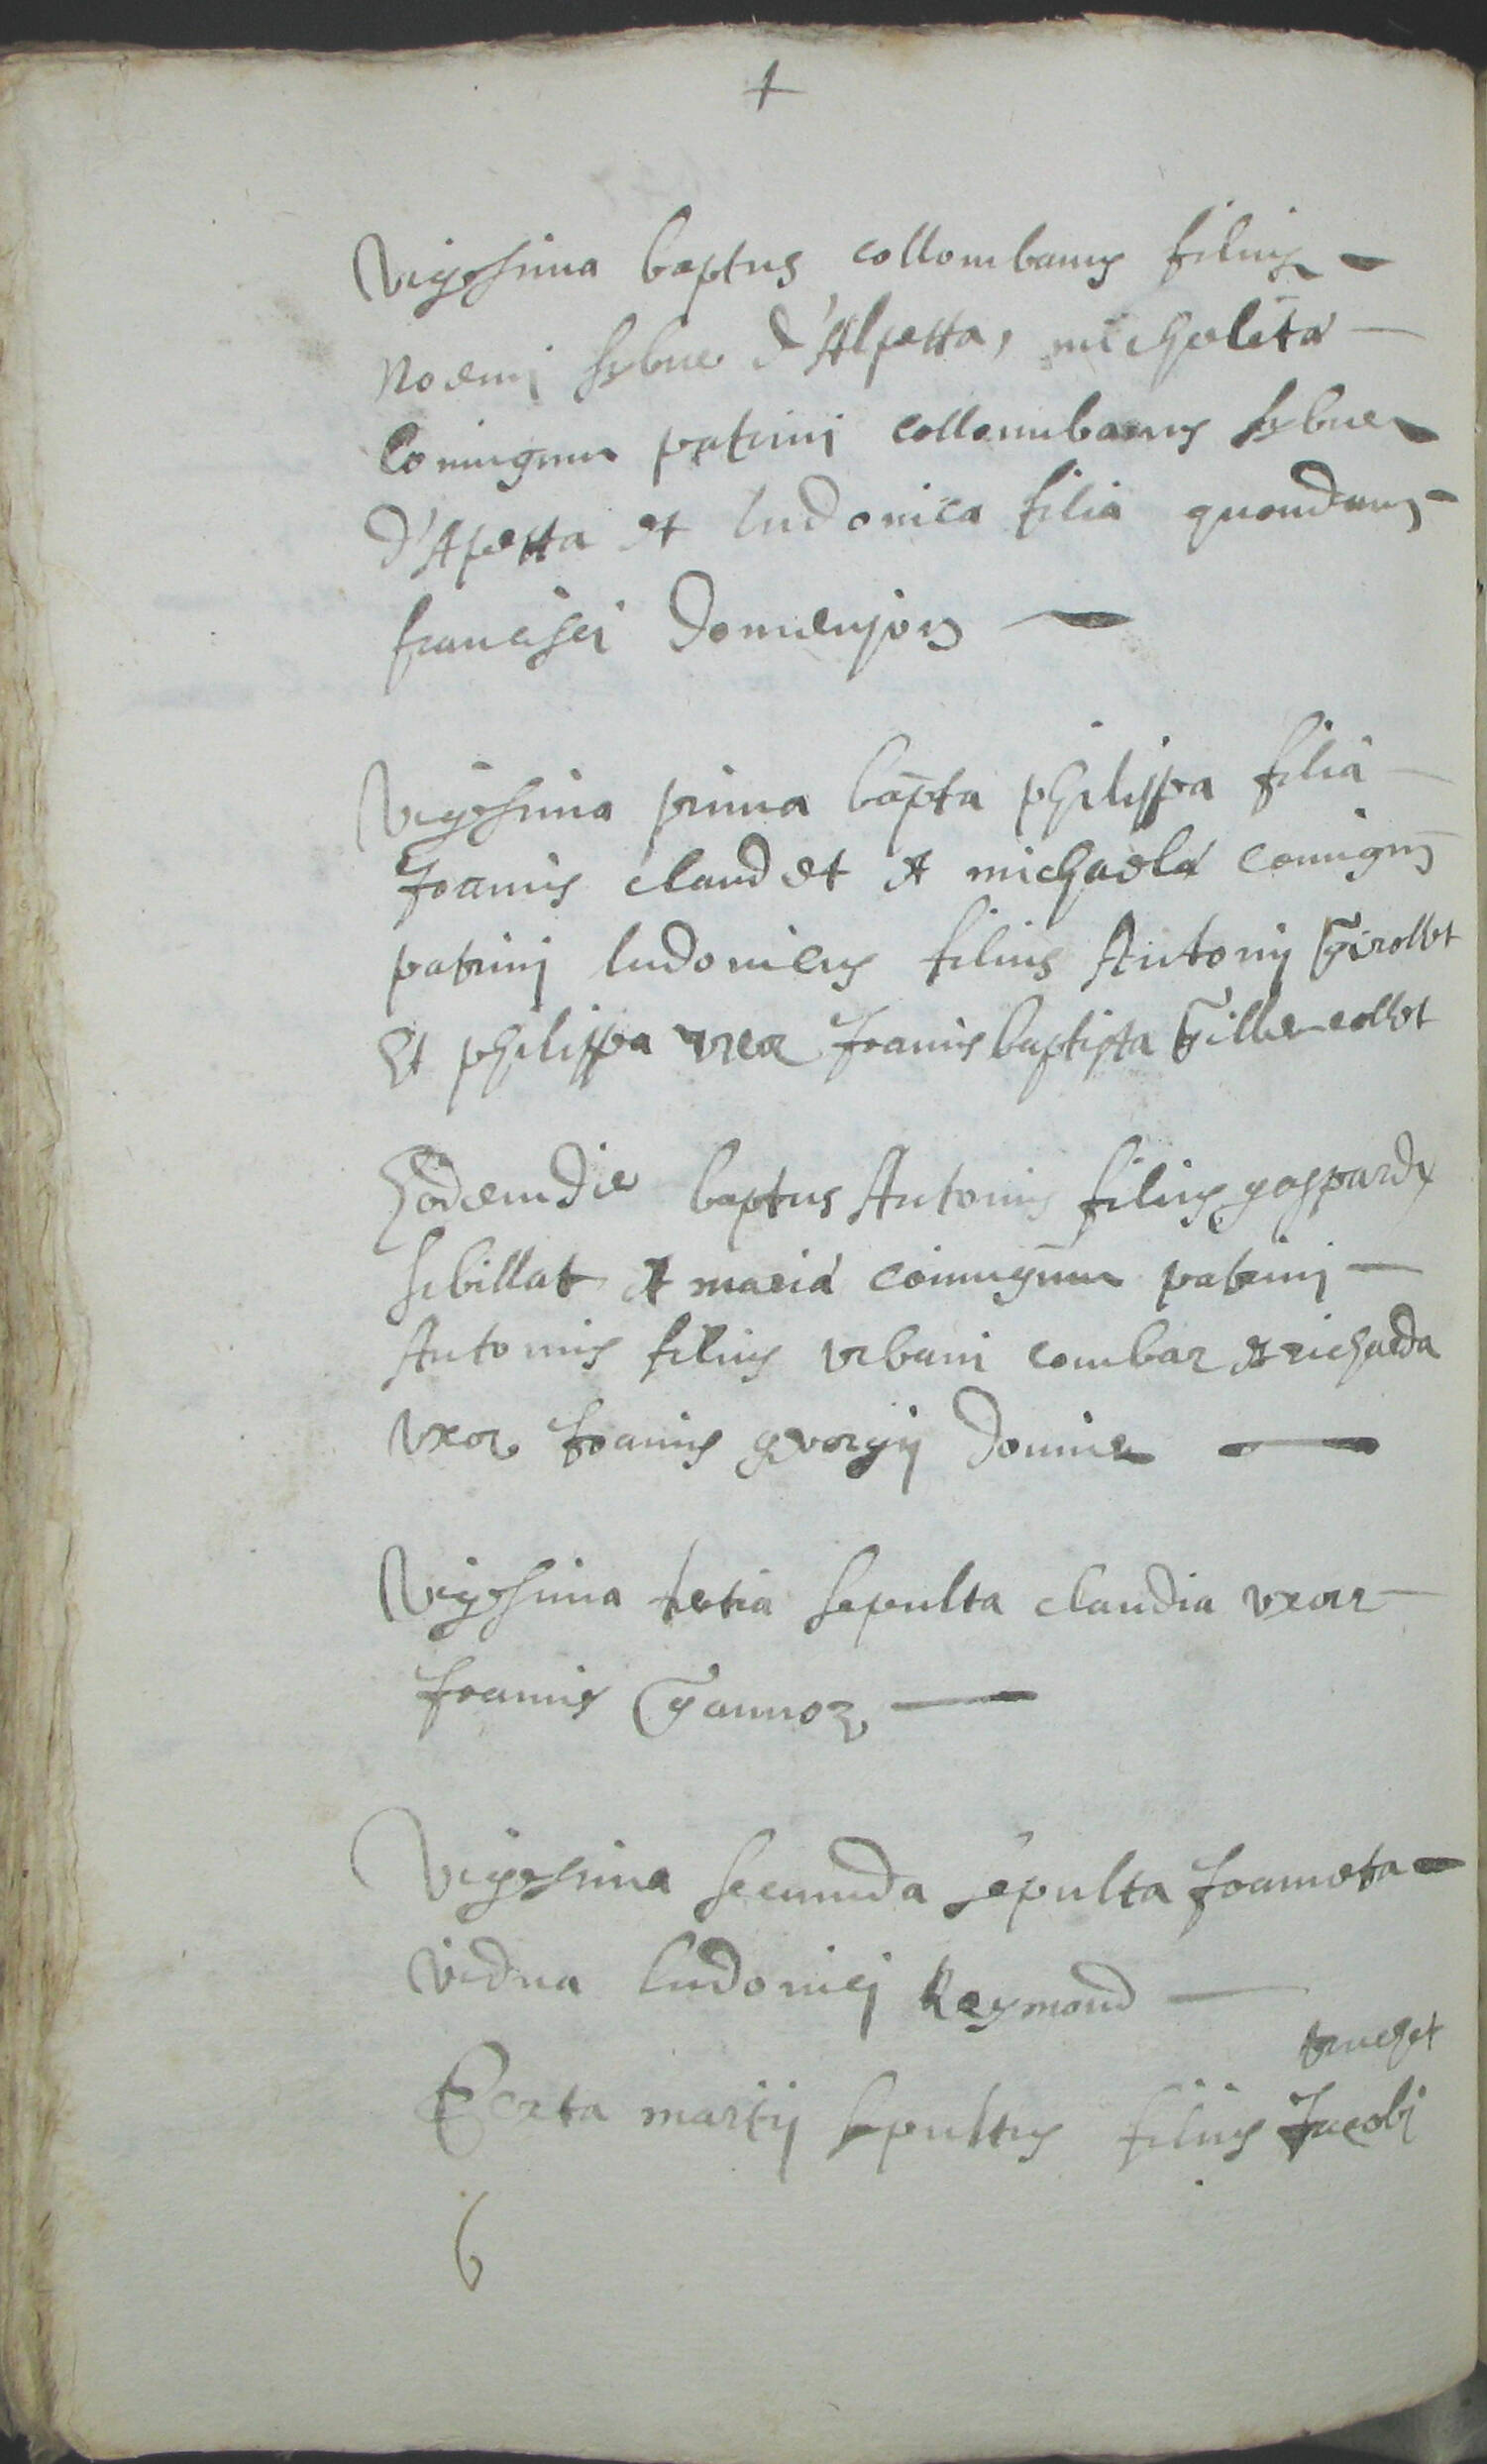 +
Vigesima baptus collombanus filius
Noemj Sybue d'Alpetta, micholeta
Coniugum patrinj collombanus Sybue
d'Apetta et ludovica filia quondam
francisci domenjon
Vigesima prima bapta philippa filia
Joannis claudet et michaela coniugum
patrinj ludovicus filius Antonij Girollet
Et philippa uxor Joannis baptista Gillecollet
Eodem die baptus Antonius filius gaspardj
Sibillat et maria coniugum patrinj
Antonius filius urbani combaz et richarda
uxor Joannis georgij
Vigesima tertia sepulta claudia uxor
Joannis Gannoz
Vigesima secunda sepulta Joanneta
vidua ludovicj Reymond
truchet
Sexta martij sepultus filius Jacobj
6